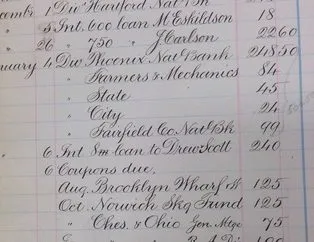 cembr 1 Div Hartford Nat Bk
" 5 Int. 600 loan M Eskildson 18
" 26 " 750 " J Carlson 22 60
nuary 4 Div Phoenix Nat Bank 248 50
" Farmers & Mechanics 84
" State 45
" City 24
" Fairfield Co. Nat Bk 99
" 6 Int 8m loan to Drew Scott 240
6 Coupons due.
Aug. Brooklyn Wharf 125
Oct. Norwich Skg Fund 125
" Ches. & Ohio Gen. Mtge 75